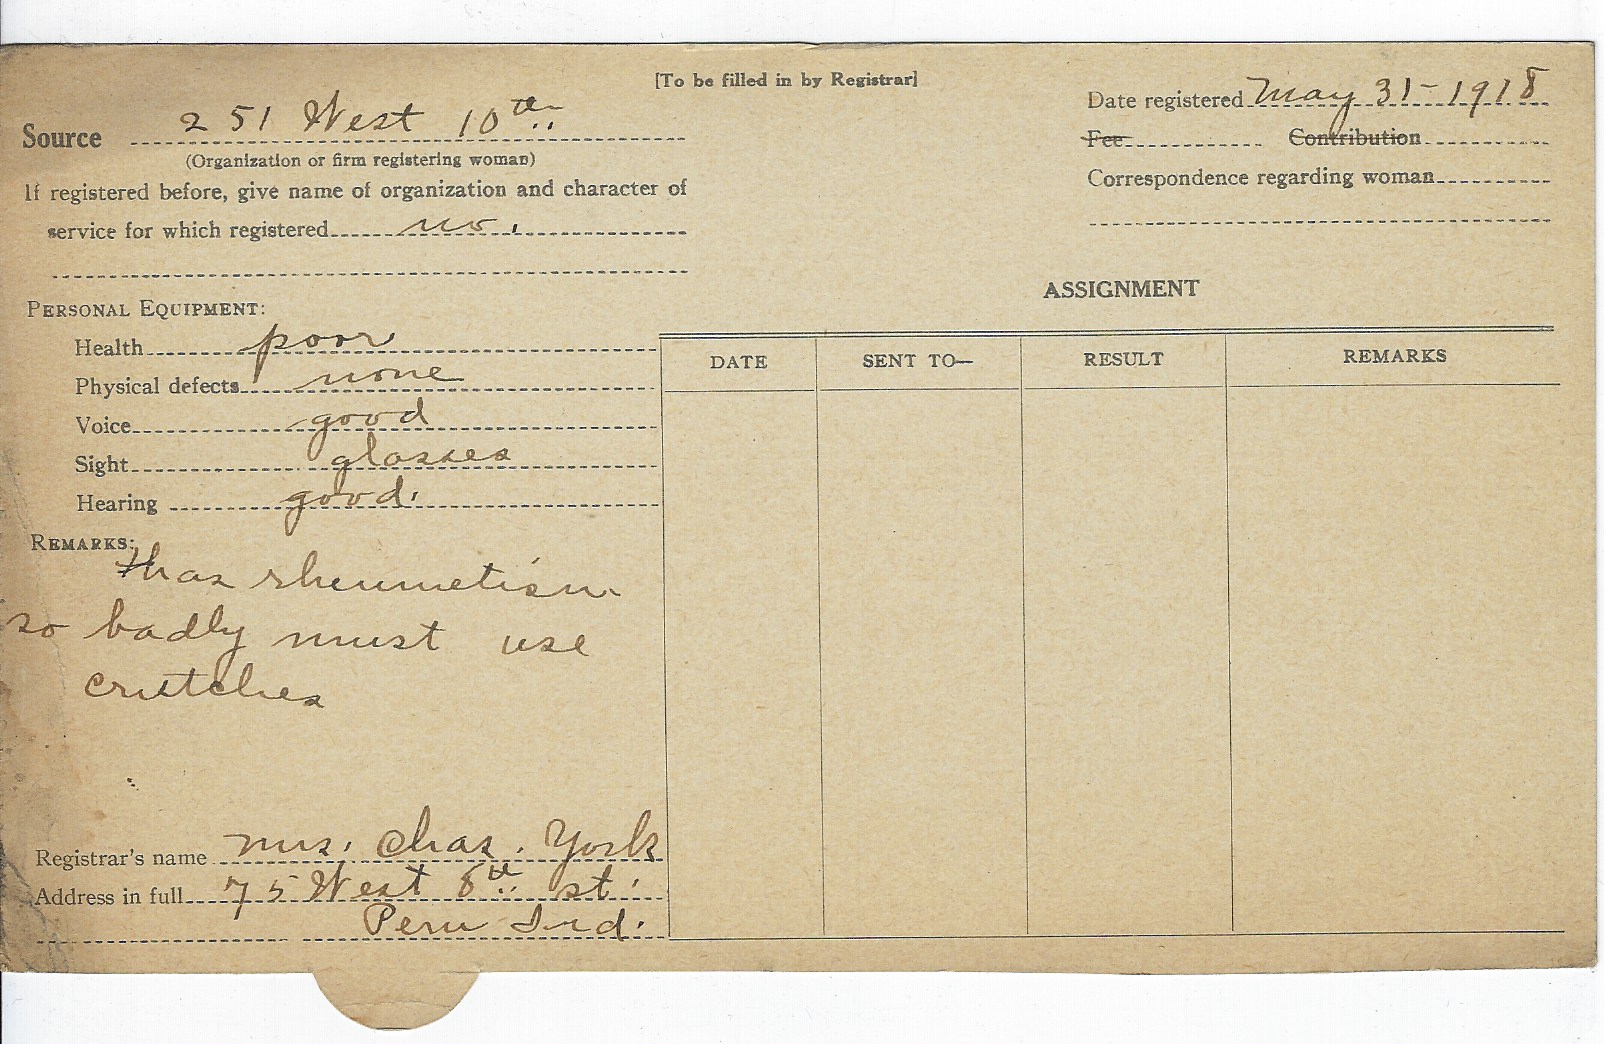 [To be filled in by Registrar]
Source 251 West 10th
(Organization or firm registering woman)
If registered before, give name of organization and character of
service for which registered no.
Date registered May 31-1918
Fee Contribution
Correspondence regarding woman
PERSONAL EQUIPMENT:
Health poor
Physical defects none
Voice good
Sight glasses
Hearing good.
REMARKS:
has rheumetism
so badly must use
crutches
Registrar's name Mrs. Chas. York
Address in full 75 West 8th st.
Peru Ind.
ASSIGNMENT
DATE SENT TO— RESULT REMARKS